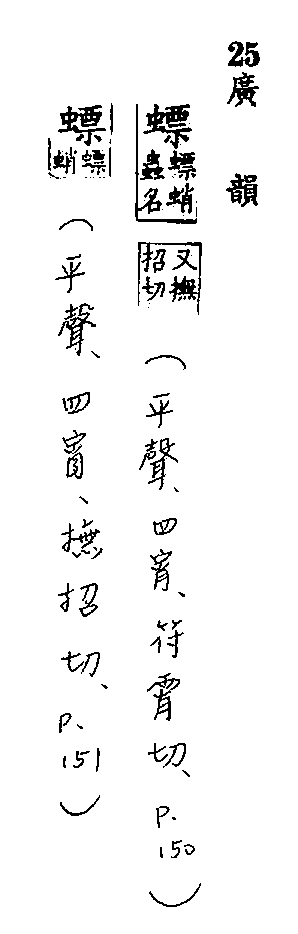 25廣韻
螵螵蛸蟲名又撫招切(平聲、四宵、符霄切、P.150)
螵螵蛸(平聲、四宵、撫招切、P.151)